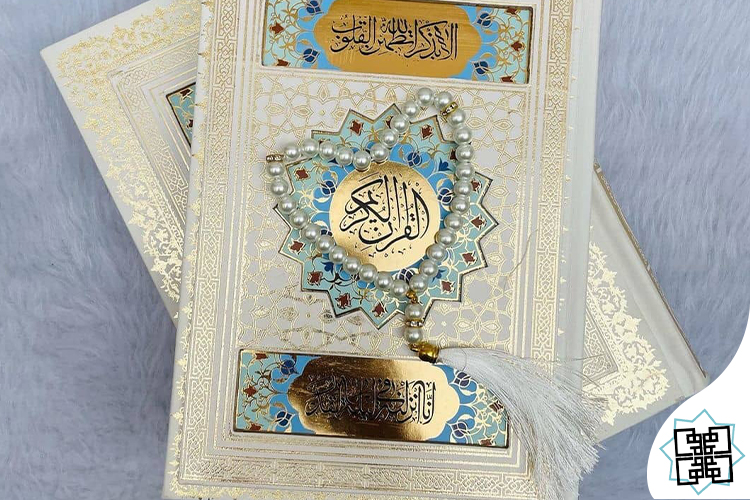 الا بذکر الله تطمئن القلوب
القرآن الکریم
انا انزلناه فی لیلة القدر